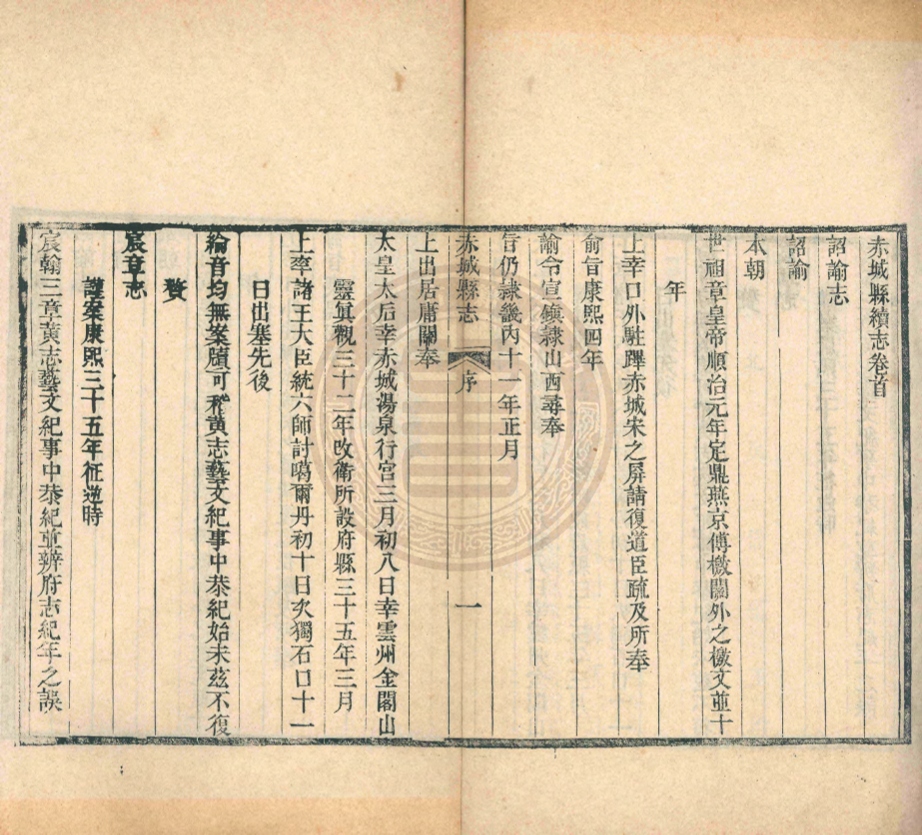 赤城縣續志卷首
詔諭志
詔諭
本朝
世祖章皇帝順治元年定鼎燕京傅檄關外之檄文並十
年
上幸口外駐蹕赤城宋之屏請復道臣疏及所奉
俞旨康熙四年
諭令宣鎮隸山西尋奉
旨仍隸畿內十一年正月
赤城縣志
序
一
上出居庸關奉
太皇太后幸赤城湯泉行宮三月初八日幸雲州金閣山
靈眞觀三十二年改衛所設府縣三十五年三月
上率諸王大臣統六師討噶爾丹初十日次獨石口十一
日出塞先後
綸音均無案牘可稽黃志藝文紀事中恭紀始末茲不復
贅
宸章志
謹案康熙三十五年征逆時
宸翰三章黃志藝文紀事中恭紀並辨府志紀年之誤